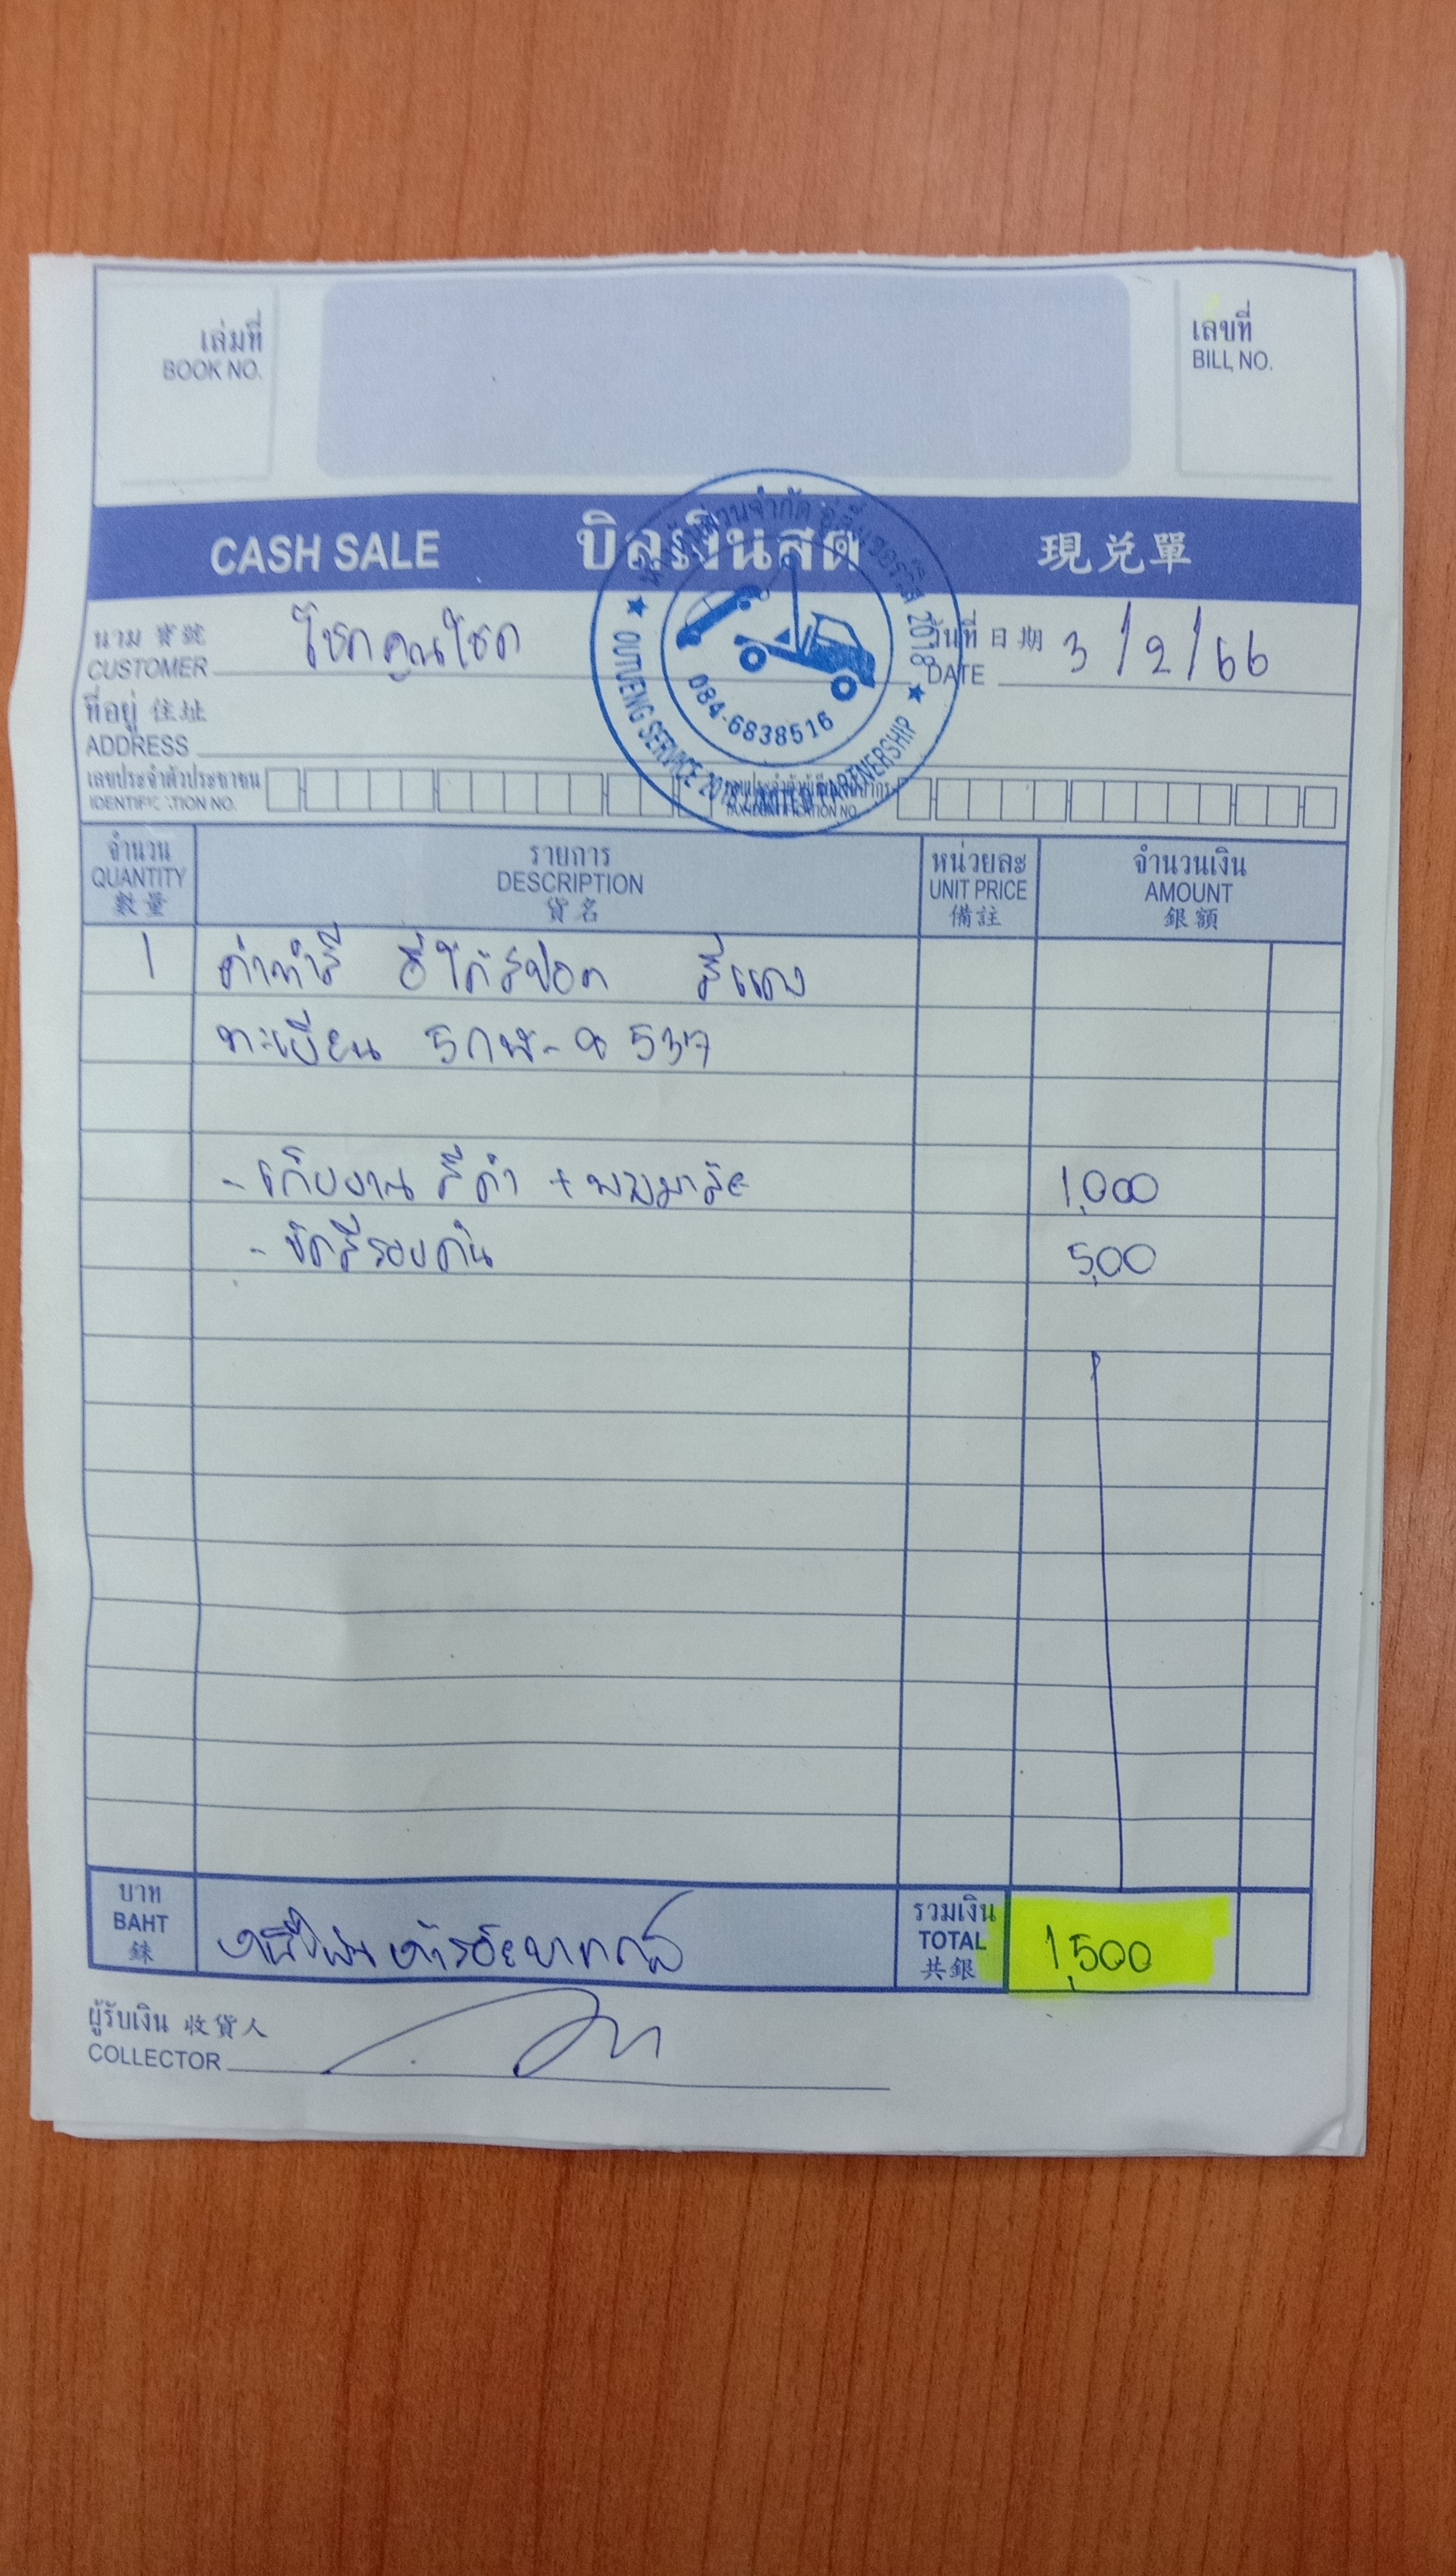 เล่มที่
BOOK NO.
เลขที่
BILL NO.
CASH SALE บิลเงินสด 現兑單
ห้างหุ้นส่วนจำกัด อู่ตึ๋งเซอร์วิส 2018
OUTUENG SERVICE 2018 LIMITED PARTNERSHIP
084-6838516
นาม 寶號 โชคคูณโชค วันที่ 日期 3/2/66
CUSTOMER DATE
ที่อยู่ 住址
ADDRESS
เลขประจำตัวประชาชน
IDENTIFICATION NO.
จำนวน รายการ หน่วยละ จำนวนเงิน
QUANTITY DESCRIPTION UNIT PRICE AMOUNT
數量 貨名 備註 銀額
1 ค่าทำสี อีโค่สปอต สีแดง
ทะเบียน 5กฬ-9537
- เก็บงาน สีดำ + พวงมาลัย 1,000
- ขัดสีรอบคัน 500
บาท รวมเงิน
BAHT หนึ่งพันห้าร้อยบาทถ้วน TOTAL 1,500
銖 共銀
ผู้รับเงิน 收貨人
COLLECTOR